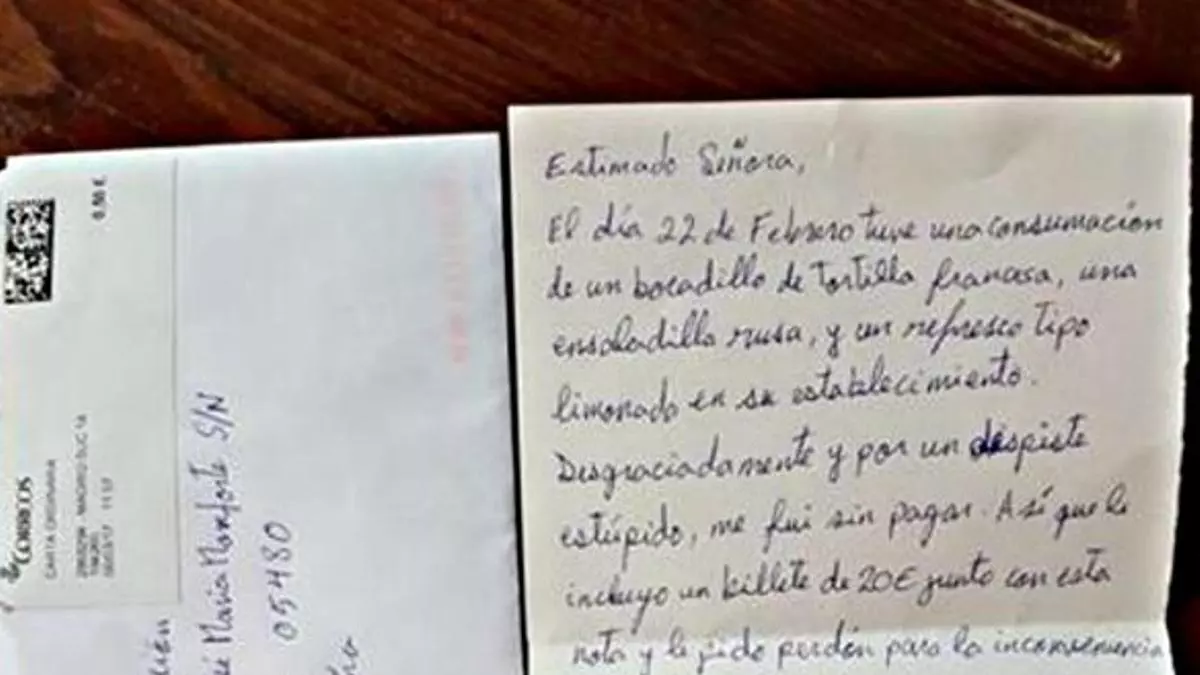 Estimado Señora,
El día 22 de Febrero tuve una consumación
de un bocadillo de tortilla francesa, una
ensaladilla rusa, y un refresco tipo
limonado en su establecimiento.
Desgraciadamente y por un despiste
estúpido, me fui sin pagar. Así que le
incluyo un billete de 20€ junto con esta
nota y le pido perdón para la inconveniencia
CORREOS
CARTA ORDINARIA
MADRID SUC
María Monforte S/N
05480